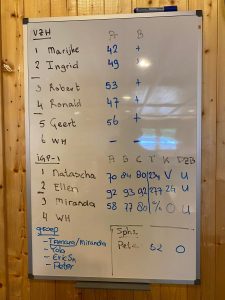 VZH A B
1 Marijke 42 +
2 Ingrid 49 +
3 Robert 53 +
4 Ronald 47 +
5 Geert 56 +
6 WH - -
IGP-1 A B C T K DZB
1 Natascha 70 84 80 234 V U
2 Ellen 92 93 92 277 24 U
3 Miranda 58 77 80 % O U
4 WH
groep
- Tamara/Miranda
- Eric Sn
- Peter
Sph 2
Peter 62 O